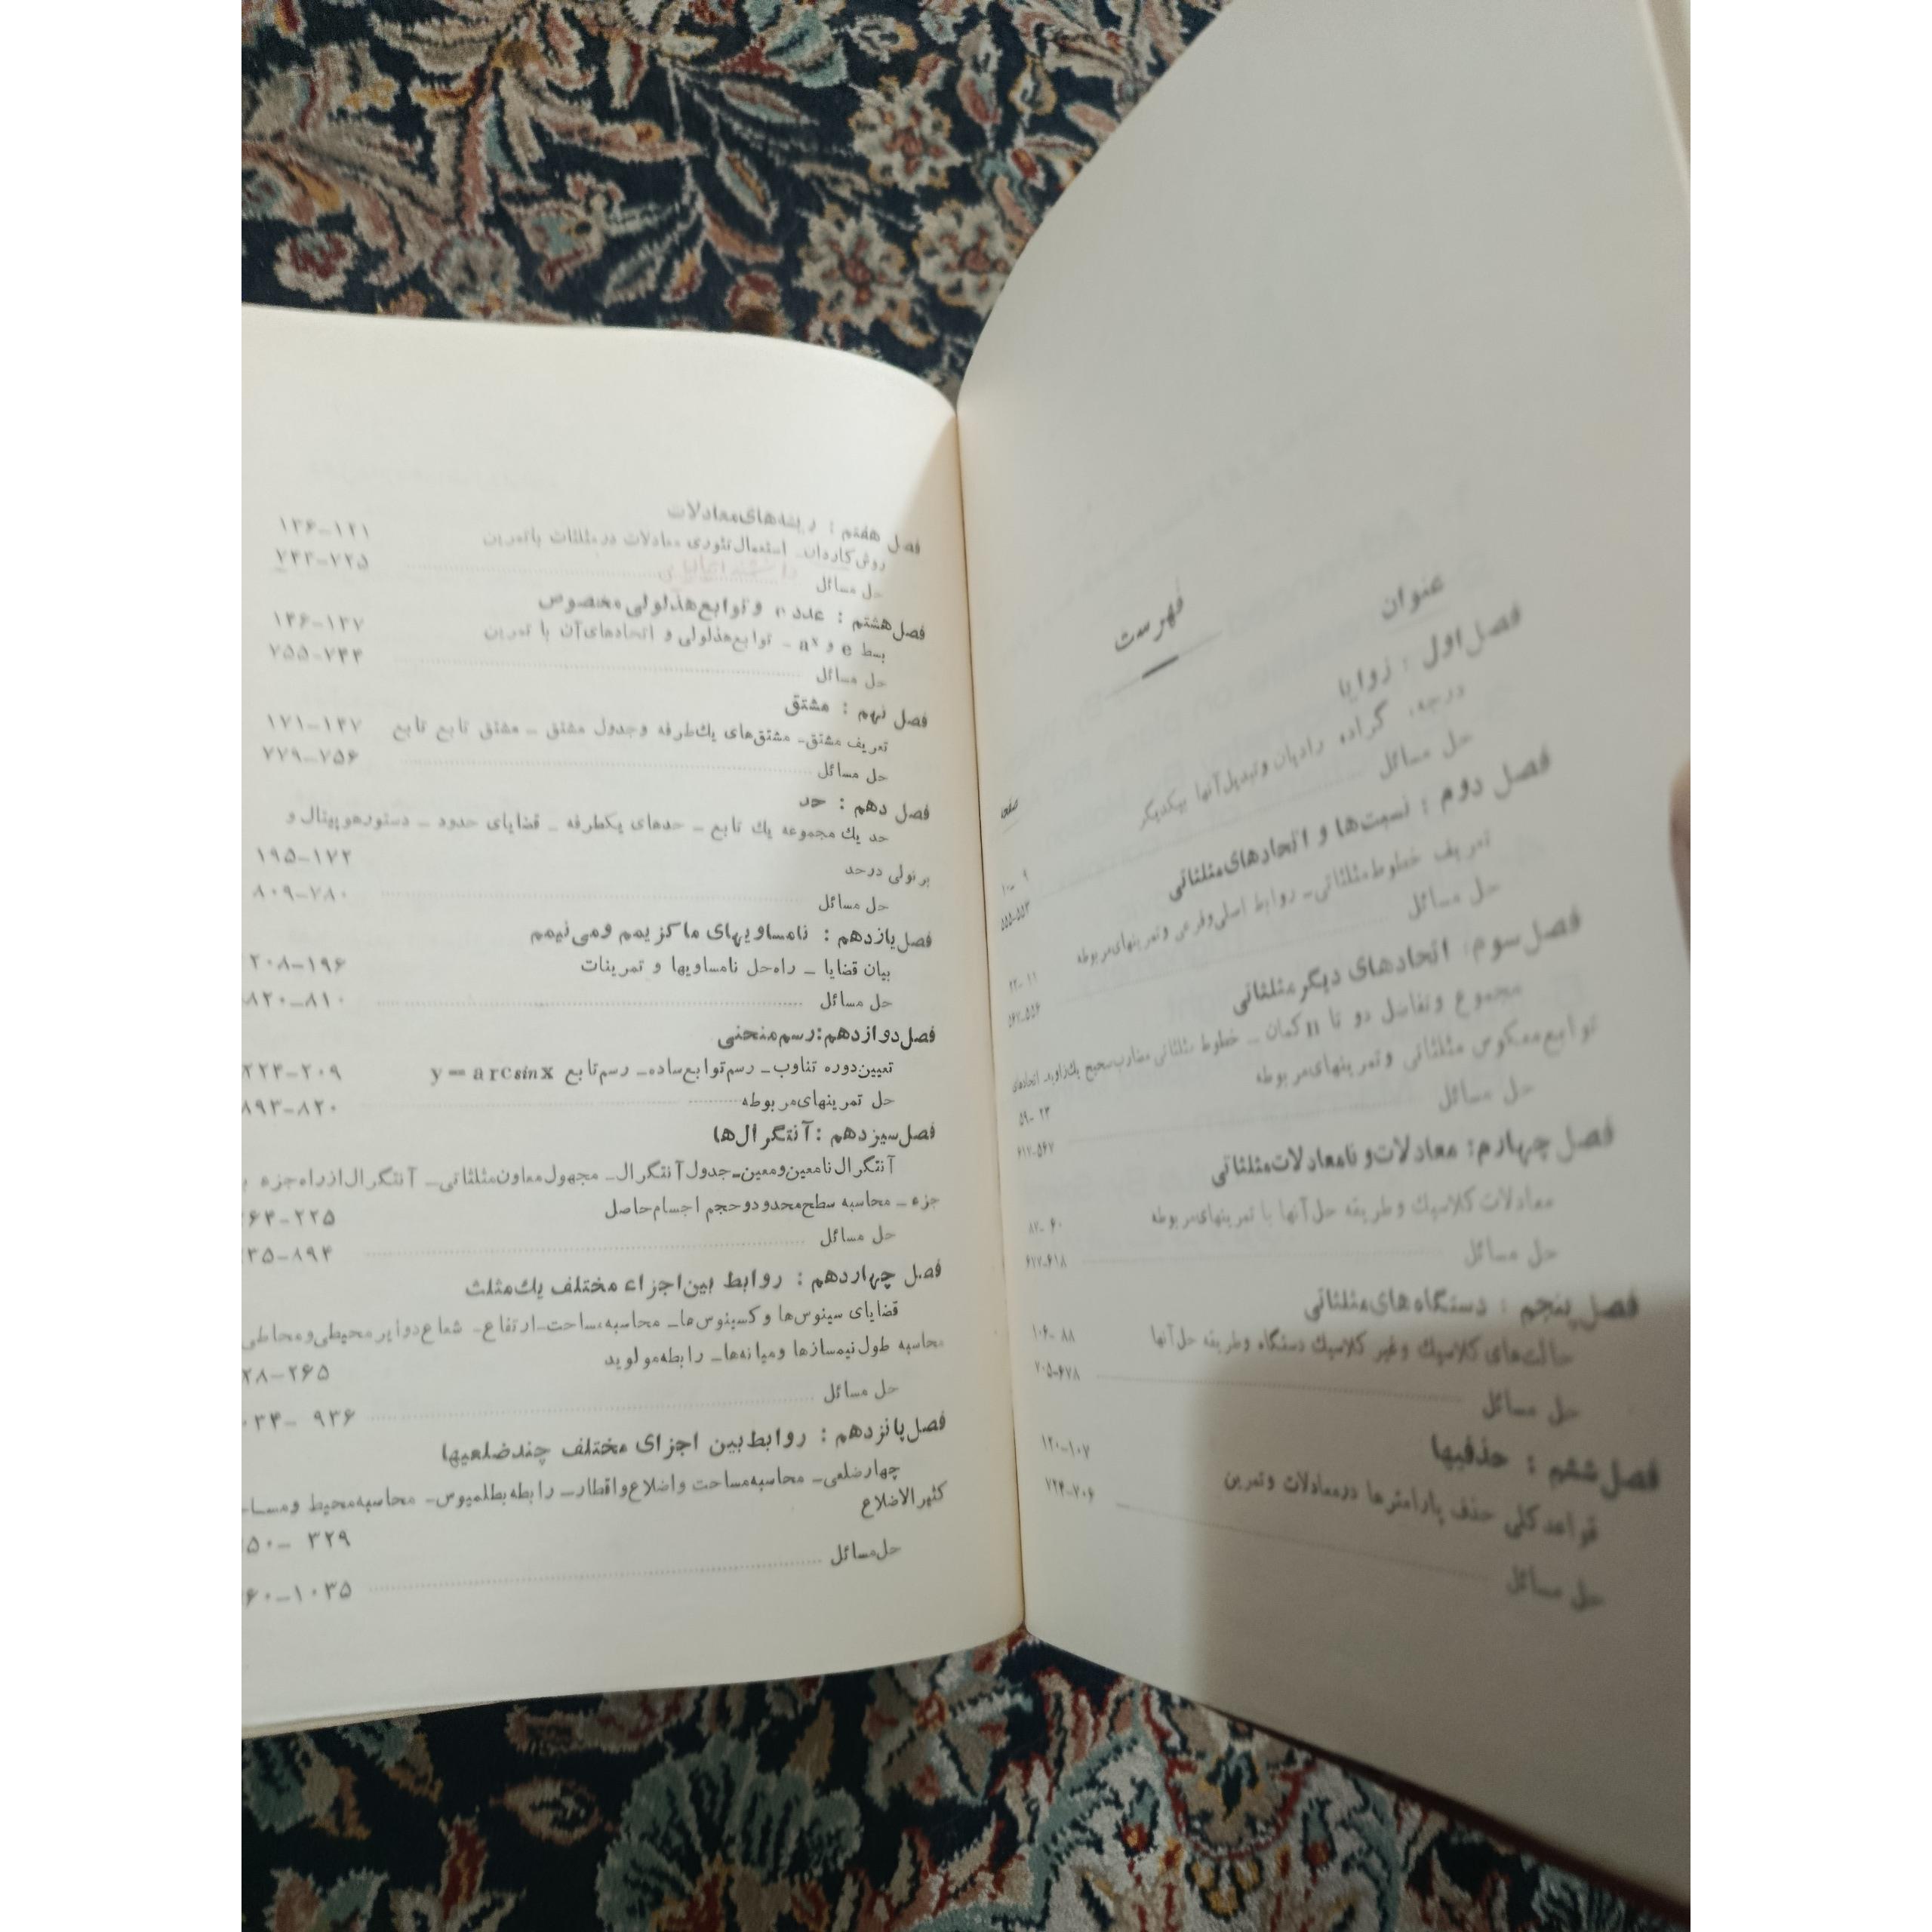 فهرست
عنوان
صفحه
فصل اول : زوایا
درجه، گراده رادیان و تبدیل آنها بیکدیگر
۹ -۱۰
حل مسائل ۵۵۳-۵۵۵
فصل دوم : نسبت‌ها و اتحادهای مثلثاتی
تعریف خطوط مثلثاتی- روابط اصلی و فرعی و تمرینهای مربوطه
۱۱ -۲۲
حل مسائل ۵۵۶-۵۶۷
فصل سوم: اتحادهای دیگر مثلثاتی
مجموع و تفاضل دو تا n کمان - خطوط مثلثاتی مضارب صحیح یك زاویه- اتحادهای
توابع معکوس مثلثاتی و تمرینهای مربوطه
۲۳ -۵۹
حل مسائل ۵۶۷-۶۱۷
فصل چهارم: معادلات و نامعادلات مثلثاتی
معادلات کلاسیك و طریقه حل آنها با تمرینهای مربوطه ۶۰ -۸۷
حل مسائل ۶۱۸-۶۷۷
فصل پنجم : دستگاه‌های مثلثاتی
حالت‌های کلاسیك و غیر کلاسیك دستگاه و طریقه حل آنها ۸۸ -۱۰۶
حل مسائل ۶۷۸-۷۰۵
فصل ششم : حذفیها
قواعد کلی حذف پارامترها در معادلات و تمرین ۱۰۷-۱۲۰
حل مسائل ۷۰۶-۷۲۴
فصل هفتم : ریشه‌های معادلات
روش کاردان- استعمال تئوری معادلات در مثلثات با تمرین ۱۲۱-۱۳۶
حل مسائل ۷۲۵-۷۴۳
فصل هشتم : عدد e و توابع هذلولی مخصوص
بسط e و aˣ - توابع هذلولی و اتحادهای آن با تمرین ۱۳۷-۱۴۶
حل مسائل ۷۴۴-۷۵۵
فصل نهم : مشتق
تعریف مشتق- مشتق‌های یك طرفه و جدول مشتق - مشتق تابع تابع ۱۴۷-۱۷۱
حل مسائل ۷۵۶-۷۷۹
فصل دهم : حد
حد یك مجموعه یك تابع - حدهای یکطرفه - قضایای حدود - دستور هوپیتال و
برنولی در حد ۱۷۲-۱۹۵
حل مسائل ۷۸۰-۸۰۹
فصل یازدهم : نامساویهای ماکزیمم و می‌نیمم
بیان قضایا - راه حل نامساویها و تمرینات ۱۹۶-۲۰۸
حل مسائل ۸۱۰-۸۲۰
فصل دوازدهم: رسم منحنی
تعیین دوره تناوب- رسم توابع ساده- رسم تابع y = arcsinx ۲۰۹-۲۲۴
حل تمرینهای مربوطه ۸۲۰-۸۹۳
فصل سیزدهم : آنتگرال‌ها
آنتگرال نامعین و معین- جدول آنتگرال- مجهول معاون مثلثاتی- آنتگرال از راه جزء
جزء - محاسبه سطح محدود و حجم اجسام حاصل ۲۲۵-۲۶۴
حل مسائل ۸۹۴-
فصل چهاردهم : روابط بین اجزاء مختلف یك مثلث
قضایای سینوس‌ها و کسینوس‌ها- محاسبه مساحت- ارتفاع- شعاع دوایر محیطی و محاطی
محاسبه طول نیمسازها و میانه‌ها- رابطه مولوید ۲۶۵-
حل مسائل ۹۳۶ -
فصل پانزدهم : روابط بین اجزای مختلف چند ضلعیها
چهار ضلعی- محاسبه مساحت و اضلاع و اقطار- رابطه بطلمیوس- محاسبه محیط و
کثیرالاضلاع
۳۲۹ -
حل مسائل ۱۰۳۵-